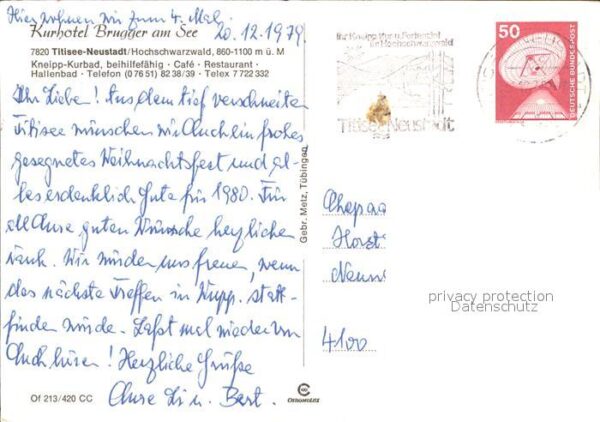 Hier wohnen wir zum 4. Mal.
20.12.1979
Kurhotel Brugger am See
7820 Titisee-Neustadt/Hochschwarzwald, 860-1100 m ü. M
Kneipp-Kurbad, beihilfefähig · Café · Restaurant ·
Hallenbad · Telefon (07651) 8238/39 · Telex 7722332
Ihr Lieben! Aus dem tief verschneiten
Titisee wünschen wir Euch ein frohes
gesegnetes Weihnachtsfest und al-
les erdenklich Gute für 1980. Für
all Eure guten Wünsche herzlichen
Dank. Wir würden uns freuen, wenn
das nächste Treffen in Wupp. statt-
finden würde. Laßt mal wieder von
Euch hören! Herzliche Grüße
Eure Li u. Bert.
Of 213/420 CC
Gebr. Metz, Tübingen
Ihr Kneipp-Kur- u. Ferienziel
im Hochschwarzwald
Titisee-Neustadt
50
DEUTSCHE BUNDESPOST
Ehepaa
Horst
4100
privacy protection
Datenschutz